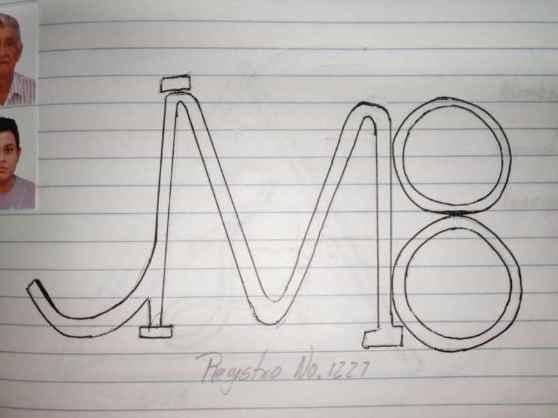 JM8
Registro No. 1227